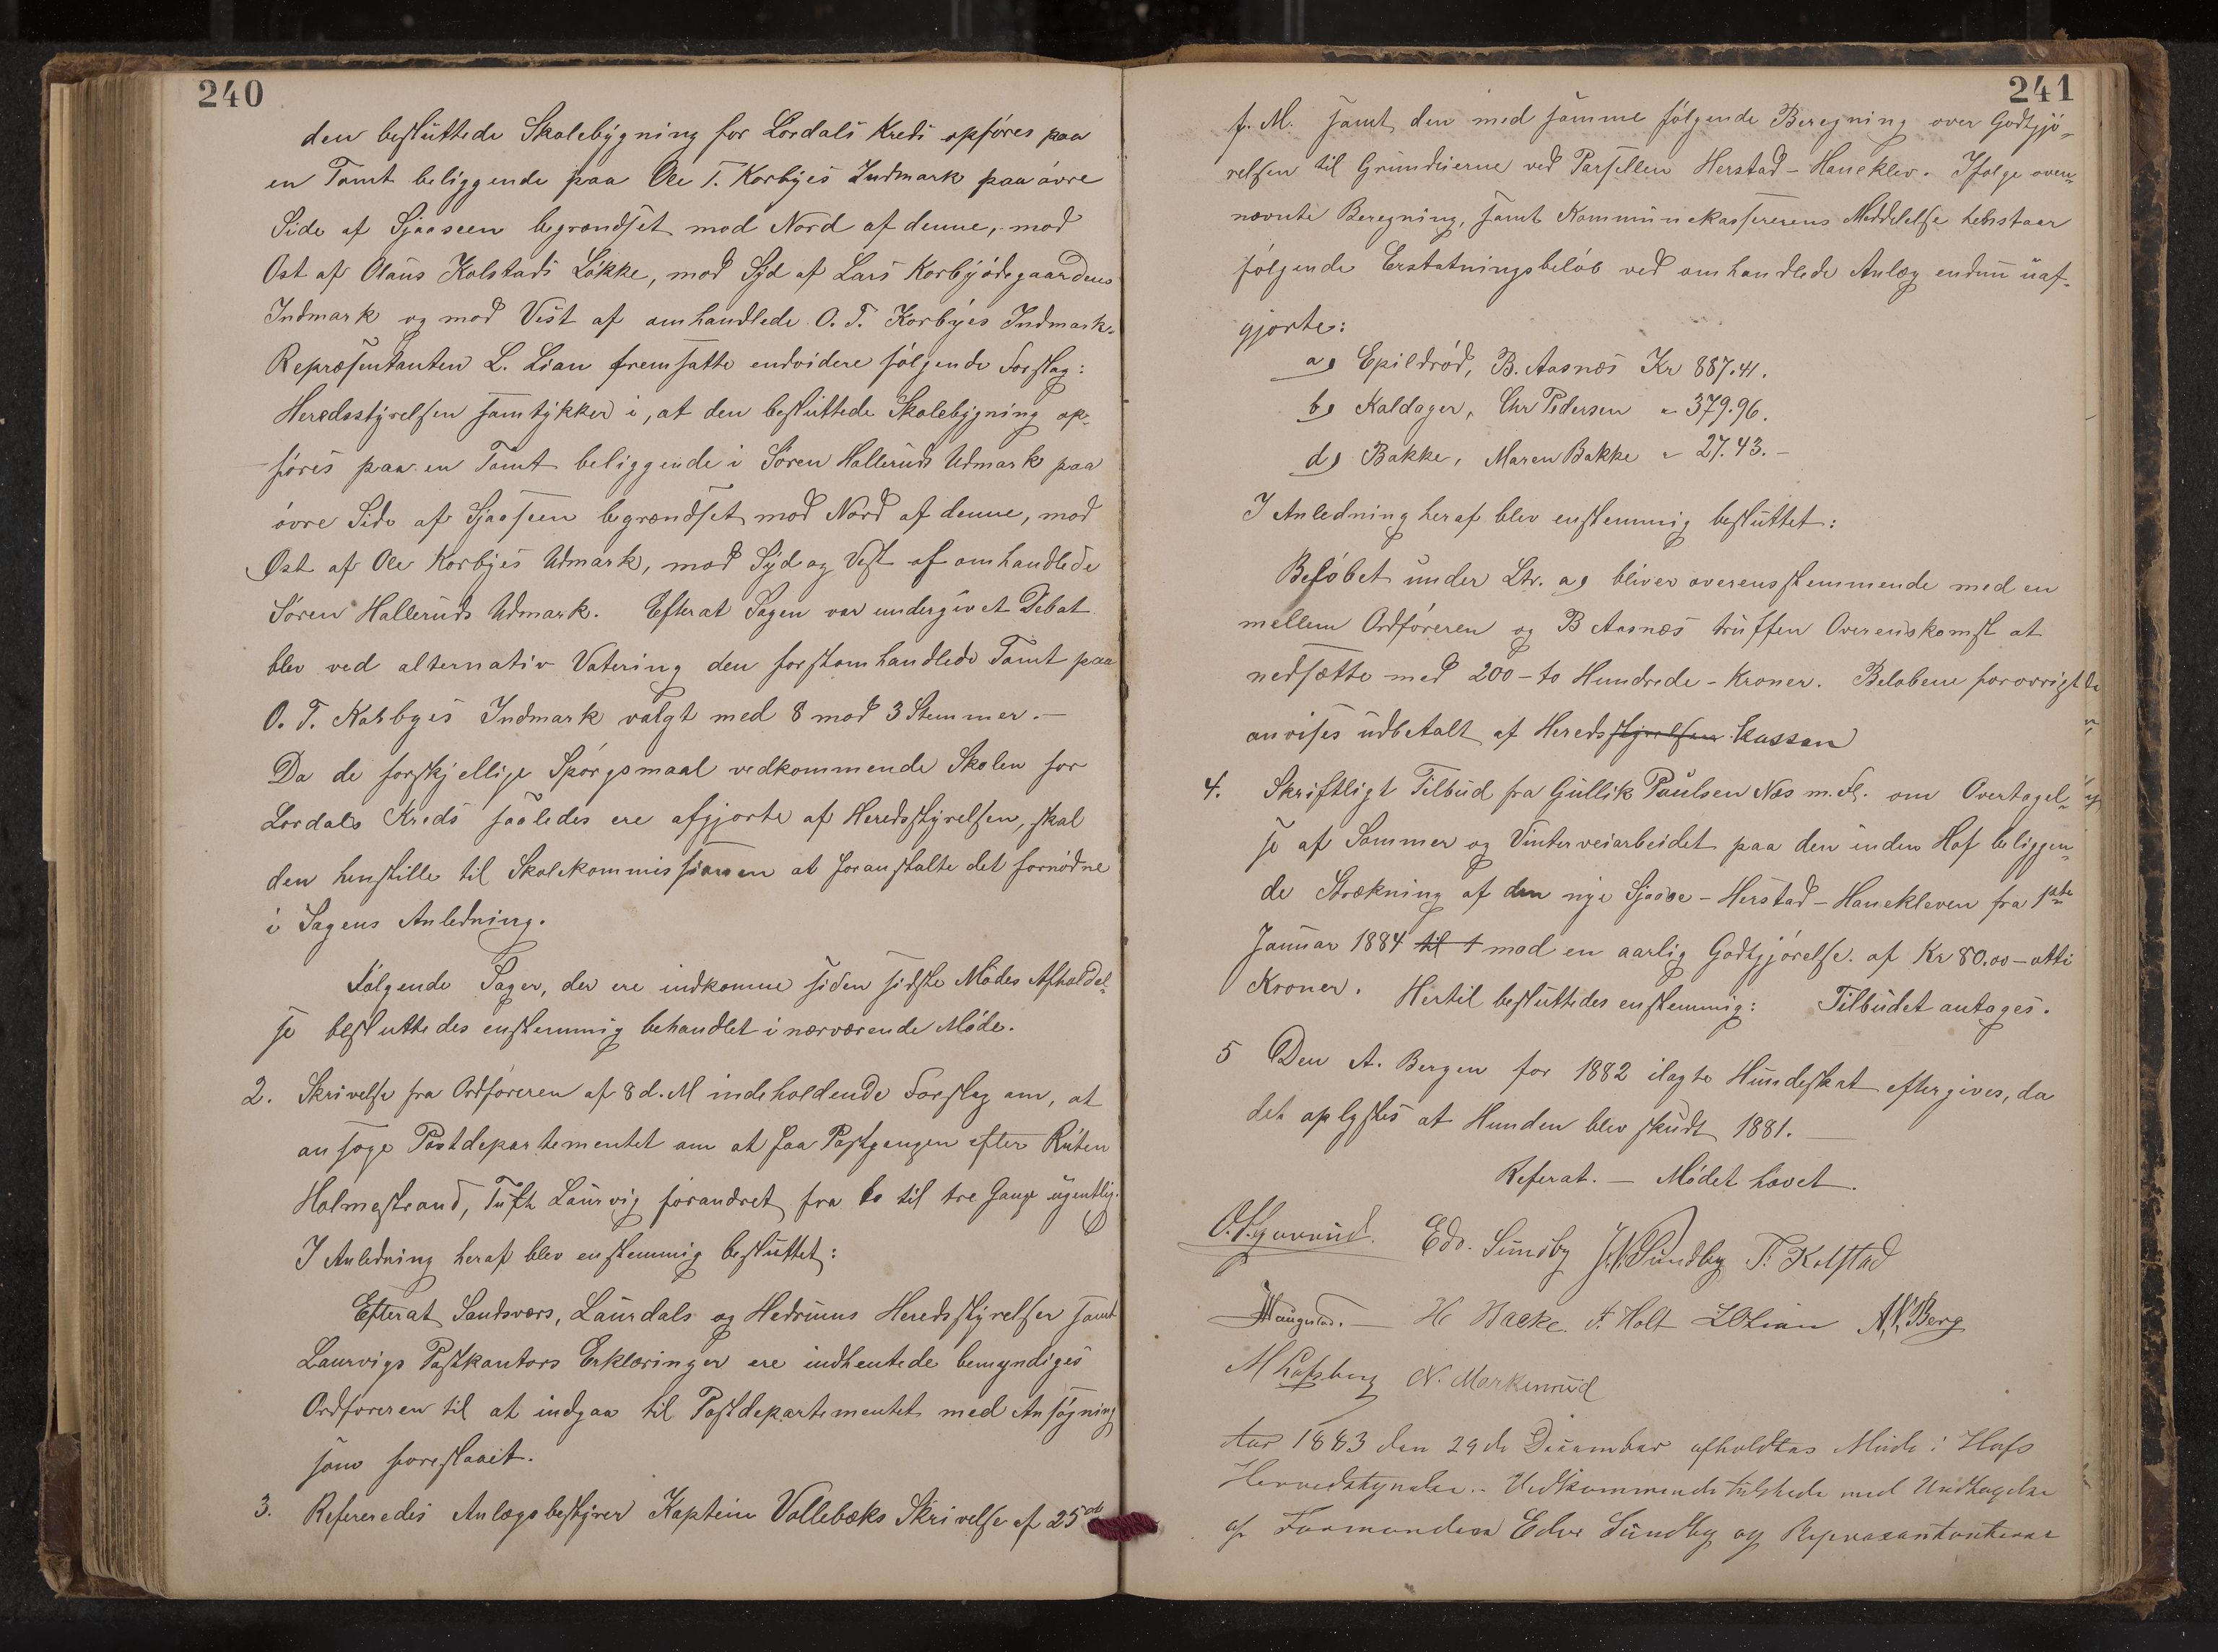 240
den besluttede Skolebygning for Lordals Kreds opføres paa
en Tomt beliggende paa Ole T. Korbyes Indmark paa øvre
Side af Sjaaseen begrændset mod Nord af denne, mod
Ost af Olaus Kolstads Løkke, mod Syd af Lars Korbyødegaardens
Indmark og mod Vest af omhandlede O. T. Korbyes Indmark.
Repræsentanten L. Lian fremsatte endvidere følgende Forslag:
Heredsstyrelsen samtykker i, at den besluttede Skolebygning op-
føres paa en Tomt beliggende i Søren Halleruds Udmark paa
øvre Side af Sjaaseen begrændset mod Nord af denne, mod
Øst af Ole Korbyes Udmark, mod Syd og Vest af omhandlede
Søren Halleruds Udmark. Efterat Sagen var undergivet Debat
blev ved alternativ Votering den førstomhandlede Tomt paa
O. T. Korbyes Indmark valgt med 8 mod 3 Stemmer.—
Da de forskjellige Spørgsmaal vedkommende Skolen for
Lordals Kreds saaledes ere afgjorte af Heredsstyrelsen, skal
den henstille til Skolekommissionen at foranstalte det fornødne
i Sagens Anledning.
Følgende Sager, der ere indkomne siden sidste Mødes Afholdel-
se besluttedes enstemmig behandlet i nærværende Møde.
2. Skrivelse fra Ordføreren af 8 d. M indeholdende Forslag om, at
ansøge Postdepartementet om at faa Postgangen efter Ruten
Holmestrand, Tufte Laurvig forandret fra to til tre Gange ugentlig.
I Anledning heraf blev enstemmig besluttet:
Efterat Sandsværs, Laurdals og Hedrums Heredsstyrelser samt
Laurvigs Postkontors Erklæringer ere indhentede bemyndiges
Ordføreren til at indgaa til Postdepartementet med Ansøgning
som foreslaaet.
3. Refereredes Anlægsbestyrer Kaptein Vollebæks Skrivelse af 25de
241
f. M. samt den med samme følgende Beregning over Godtgjø-
relsen til Grundeierne ved Parsellen Herstad - Haneklev. Ifølge oven-
nævnte Beregning, samt Kommunekassererens Meddelelse tilstaar
følgende Erstatningsbeløb ved omhandlede Anlæg endnu uaf-
gjorte:
a, Epildrød, B. Aasnæs Kr 887.41.
b, Kaldager, Chr Pedersen " 379.96.
d, Bakke, Maren Bakke " 27.43.—
I Anledning heraf blev enstemmig besluttet:
Beløbet under Ltr. a, bliver overensstemmende med en
mellem Ordføreren og B Aasnæs truffen Overenskomst at
nedsætte med 200 - to Hundrede - Kroner. Beløbene forøvrigt
anvises udbetalt af Heredsstyrelsen kassen
4. Skriftligt Tilbud fra Gullik Paulsen Næs m. Fl. om Overtagel-
se af Sommer og Vinterveiarbeidet paa den inden Hof beliggen-
de Strækning af den nye Sjaase - Herstad - Hanekleven fra 1ste
Januar 1884 til 1 mod en aarlig Godtgjørelse af Kr 80.00 - otti
Kroner. Hertil besluttedes enstemmig: Tilbudet antages.
5 Den A. Bergen for 1882 ilagte Hundeskat eftergives, da
det oplystes at Hunden blev skudt 1881.—
Referat. — Mødet hævet.
Edv. Sundby Sundby T. Kolstad
Haugestad. — H Backe. F. Holt L O Lian A. Berg
M Løfsberg N. Markenrud
Aar 1883 den 29de Desember afholdtes Møde i Hofs
Herredstyrelse. - Vedkommende tilstede med Undtagelse
af Formanden Edv Sundby og Repræsentanterne